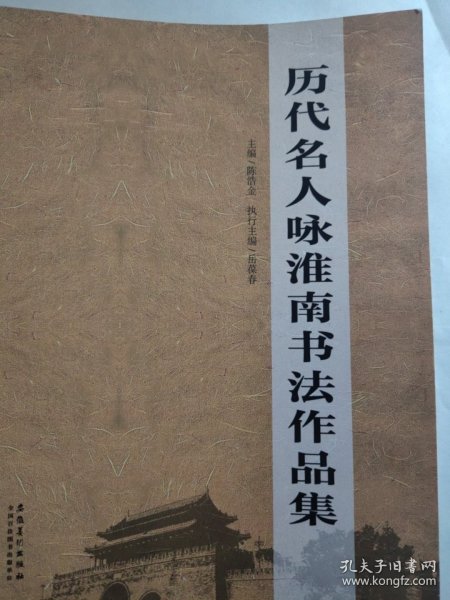 历代名人咏淮南书法作品集
主编/陈浩金 执行主编/岳葆春
安徽美术出版社
全国百佳图书出版单位
孔夫子旧书网
www.kongfz.com